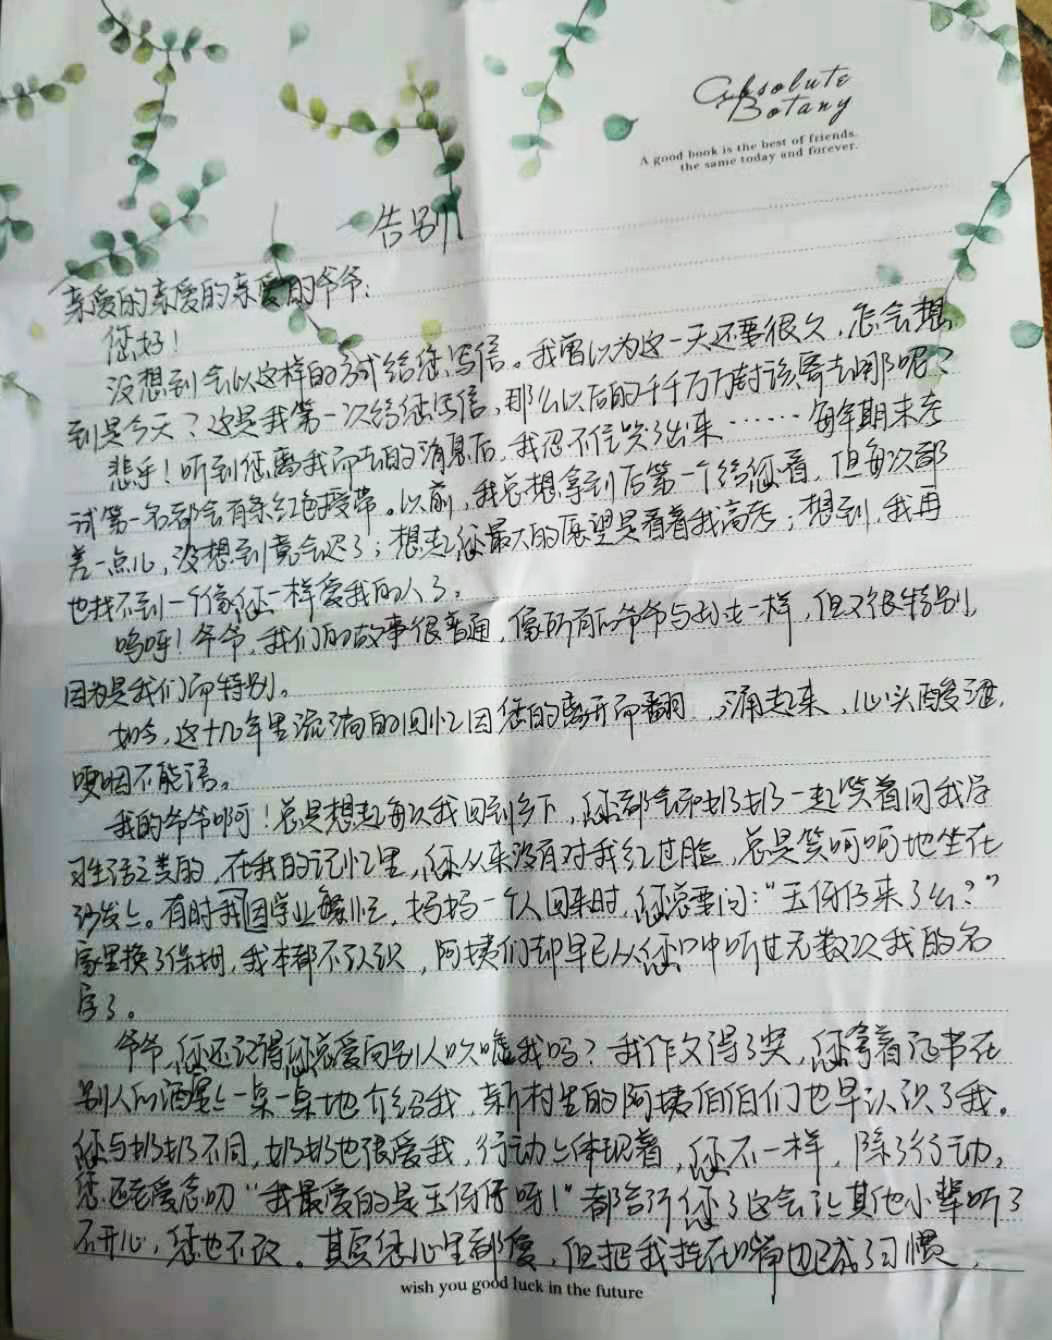 Absolute
Botany
A good book is the best of friends.
the same today and forever.
告别
亲爱的亲爱的亲爱的爷爷：
您好！
没想到会以这样的方式给您写信。我曾以为这一天还要很久，怎会想
到是今天？这是我第一次给您写信，那么以后的千千万万封该寄去哪呢？
悲乎！听到您离我而去的消息后，我忍不住哭了出来……每年期末考
试第一名都会有条红色绶带。以前，我总想拿到后第一个给您看，但每次都
差一点儿，没想到竟会迟了；想起您最大的愿望是看着我高考；想到，我再
也找不到一个像您一样爱我的人了。
呜呼！爷爷，我们的故事很普通，像所有的爷爷与孙女一样，但又很特别，
因为是我们而特别。
如今，这十几年里流淌的回忆因您的离开而翻涌起来，心头酸涩，
哽咽不能语。
我的爷爷啊！总是想起每次我回到乡下，您都会和奶奶一起笑着问我学
习生活之类的，在我的记忆里，您从来没有对我红过脸，总是笑呵呵地坐在
沙发上。有时我因学业繁忙，妈妈一个人回来时，您总要问：“玉伢仔来了么？”
家里换了保姆，我本都不认识，阿姨们却早已从您口中听过无数次我的名
字了。
爷爷，您还记得您总爱向别人吹嘘我吗？我作文得了奖，您拿着证书在
别人的酒宴上一桌一桌地介绍我，新村里的阿姨伯伯们也早认识了我。
您与奶奶不同，奶奶也很爱我，行动上体现着，您不一样，除了行动，
您还老爱念叨“我最爱的是玉伢仔呀！”都告诉您了这会让其他小辈听了
不开心，您也不改。其实您心里都爱，但把我挂在嘴边已成了习惯，
wish you good luck in the future